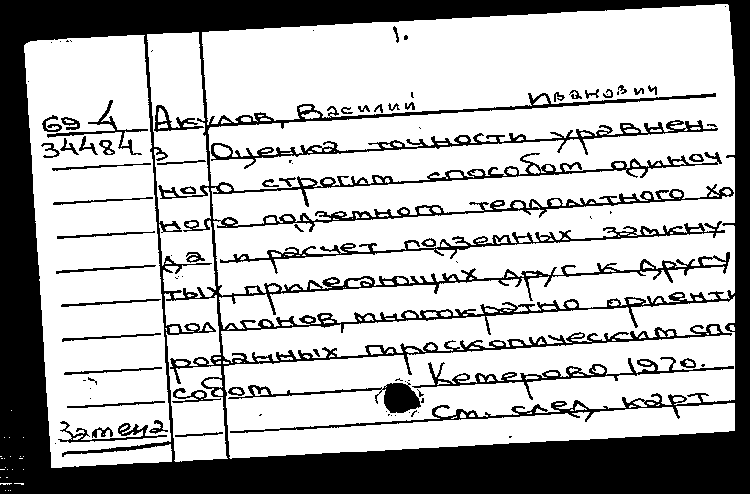 1.
69-4 Акулов, Василий Иванович
34484 з Оценка точности уравнен-
ного строгим способом одиноч-
ного подземного теодолитного хо
да и расчет подземных замкну-
тых, прилегающих друг к другу
полигонов, многократно ориенти
рованных гироскопическим спо
собом. Кемерово, 1970.
См. след. карт
Замена